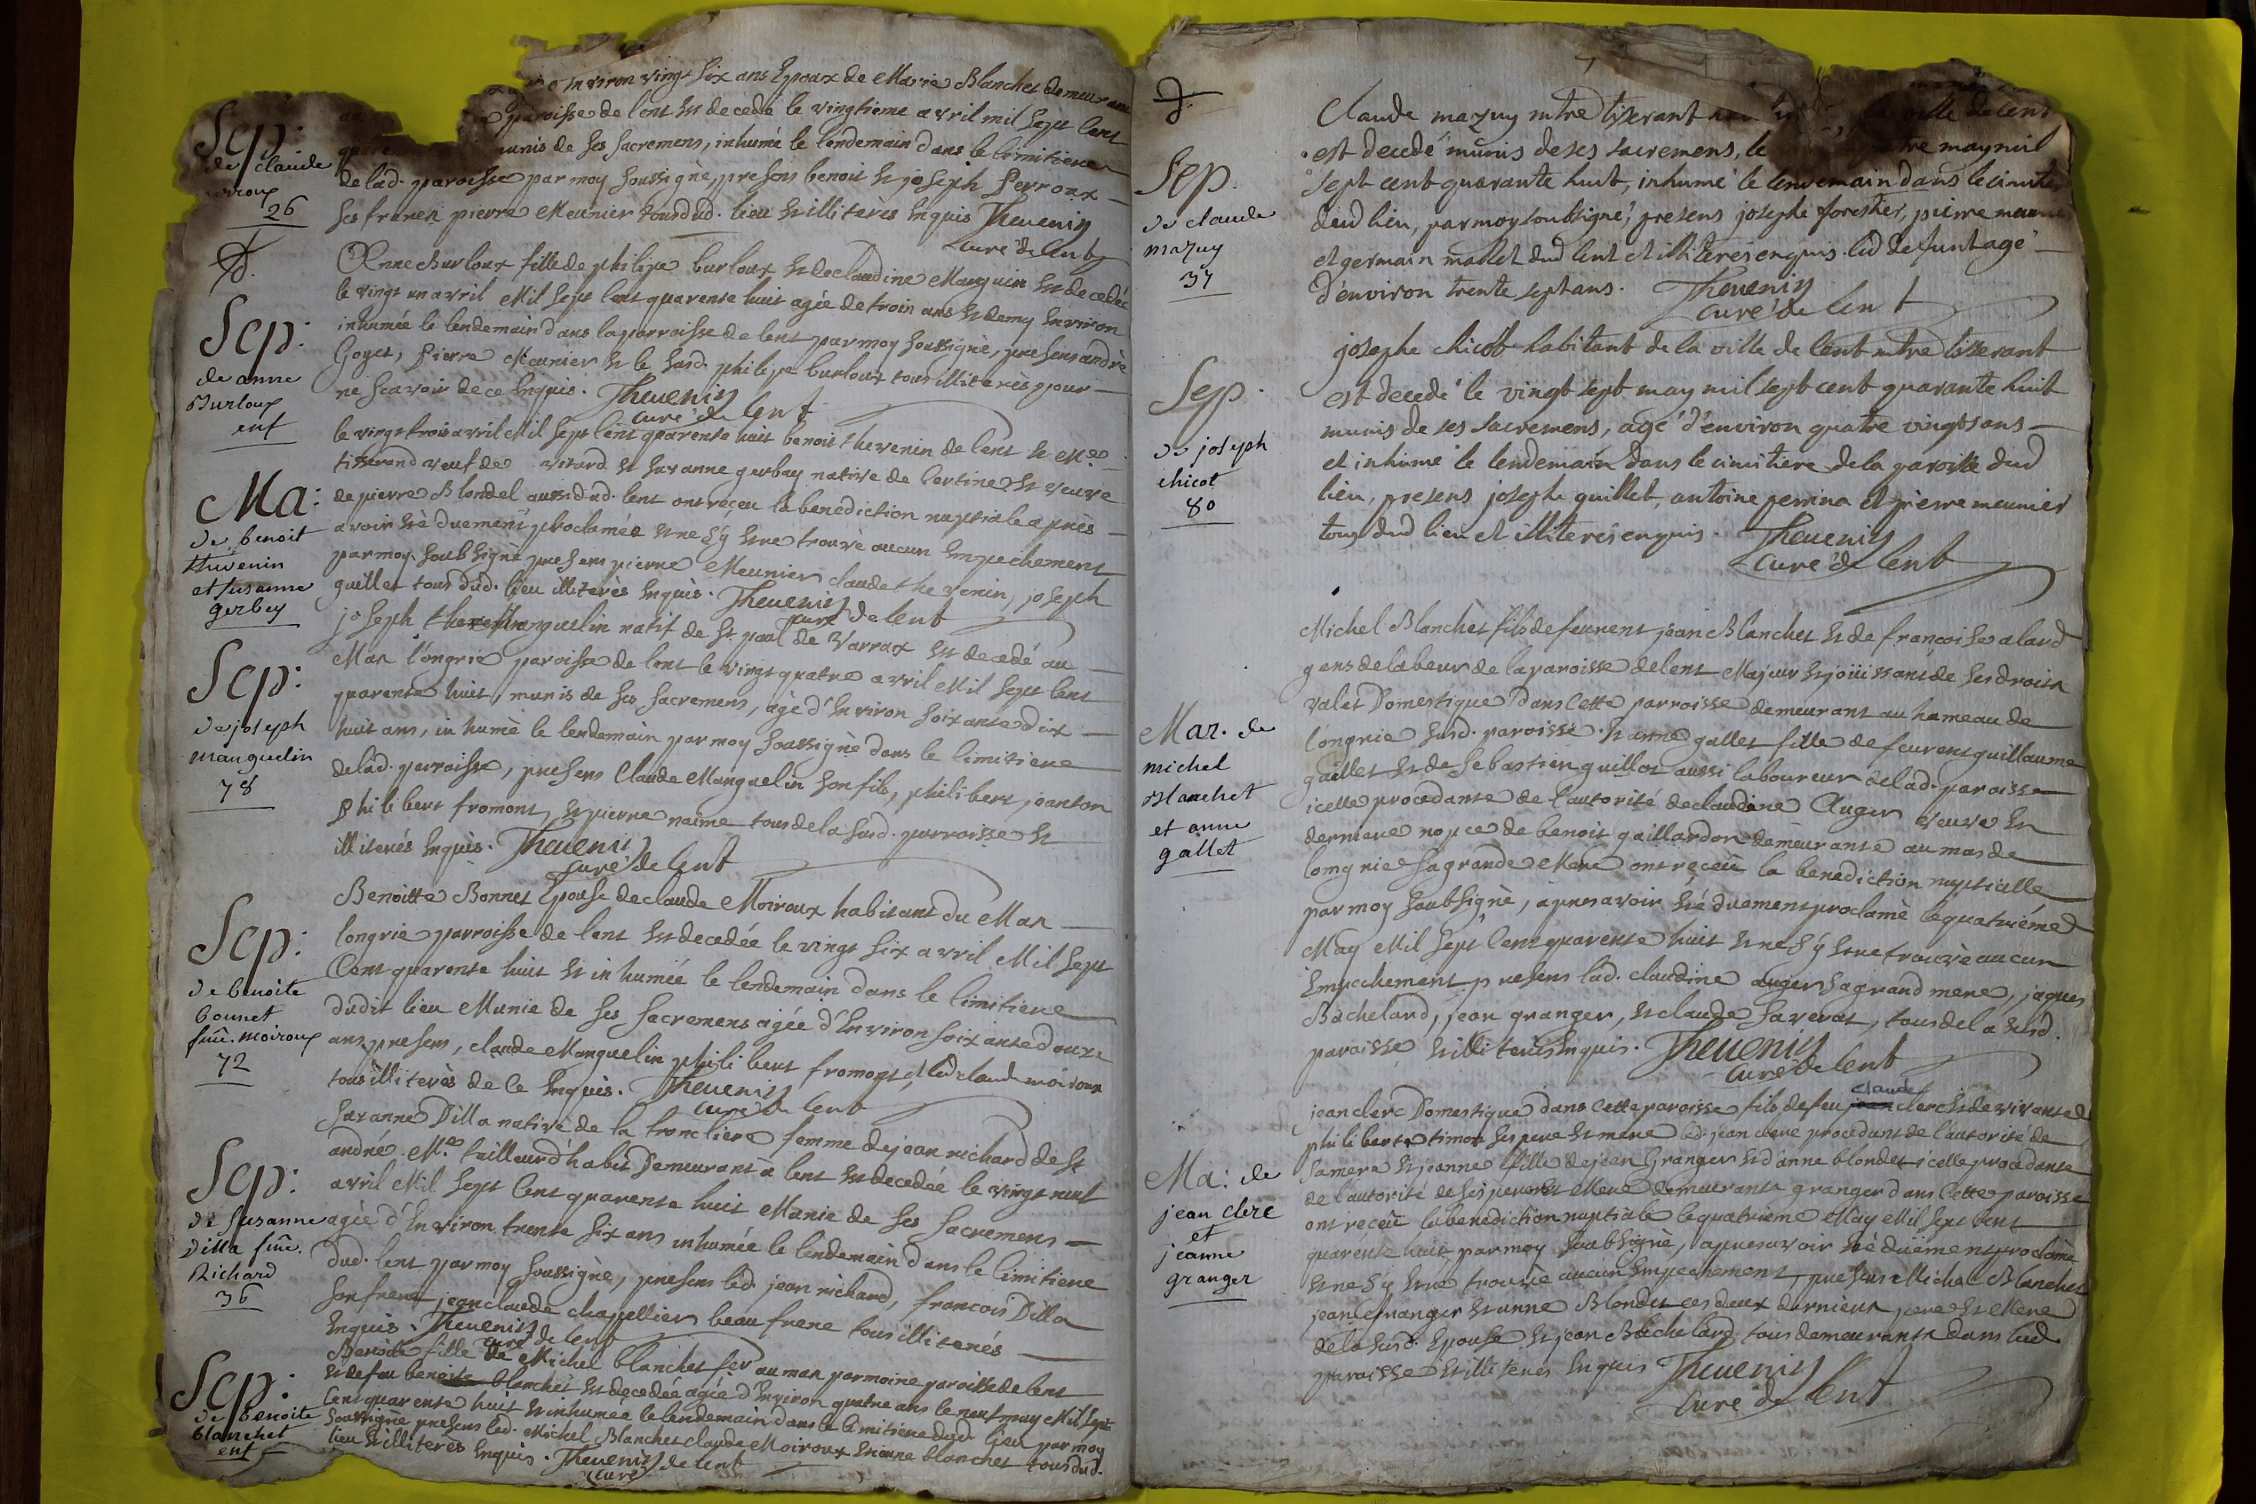 Sep:
de claude
26
environ vingt six ans Epoux de Marie Blanchet demeurant
paroisse de lent Est decedé le vingtieme avril mil Sept Cent
munis de Ses Sacremens, inhumé le lendemain dans le Cimitiere
de lad. paroisse par moy Soussigné, presens benoit Et joseph perroux
Ses freres pierre Meunier tous dud. lieu Et illiterés Enquis Thevenin
curé de lent
Sep:
de anne
Burloux
enf
Anne Burloux fille de philipe burloux Et de claudine Manguin Est decedée
le vingt un avril Mil Sept Cent quarente huit agée de trois ans Et demy Environ
inhumée le lendemain dans la parroisse de lent par moy Soussigné, presens andré
Goyet, pierre Meunier Et le Susd. philipe burloux tous illiterés pour
ne Scavoir de ce Enquis. Thevenin
curé de lent
Ma:
de benoit
thevenin
et susanne
gerbey
le vingt trois avril Mil Sept Cent quarente huit benoit thevenin de lent Et Me
tisserand veuf de vitard Et Suzanne gerbay native de Certines Et veuve
de pierre Blondel aussi dud. lent ont reçeu la benediction nuptiale après
avoir Eté duement proclamée Et ne S'y Etre trouvé aucun Empechement
par moy Soubsigné presens pierre Meunier claude thevenin, joseph
guillet tous dud. lieu illiterés Enquis. Thevenin
curé de lent
Sep:
de joseph
manguelin
78
joseph manguelin natif de St. paul de Varrax Est decedé au
Mas longrie paroisse de lent le vingt quatre avril Mil Sept Cent
quarente huit, munis de Ses Sacremens, agé d'Environ Soixante dix
huit ans, inhumé le lendemain par moy Soussigné dans le Cimitiere
de lad. parroisse, presens Claude Manguelin Son fils, philibert joanton
philibert fromont, Et pierre naime tous de la Susd. parroisse Et
illiterés Enquis. Thevenin
curé de lent
Sep:
de benoite
bonnet
fme. moiroux
72
Benoitte Bonnet Epouse de claude Moiroux habitant du Mas
longrie parroisse de lent Est decedée le vingt Six avril Mil Sept
Cent quarente huit Et inhumée le lendemain dans le Cimitiere
dudit lieu Munie de Ses Sacremens agée d'Environ Soixante douze
ans presens, claude Manguelin philibert fromont, et led claude moiroux
tous illiterés de ce Enquis. Thevenin
curé de lent
Sep:
de susanne
Dilla fme.
Richard
36
Suzanne Dilla native de la tranclière femme de jean richard de St
andré Me. tailleur d'habit Demeurant à lent Est decedée le vingt neuf
avril Mil Sept Cent quarente huit Munie de Ses Sacremens
agée d'Environ trente Six ans inhumée le lendemain dans le Cimitiere
dud. lent par moy Soussigné, presens led. jean richard, francois Dilla
Son frere jean claude chapellier beau frere tous illiterés
Enquis. Thevenin
curé de lent
Sep:
de benoite
blanchet
enf
Benoite fille de Michel blanchet au mas parmoine paroisse de lent
Et de feu benoite blanchet Est decedée agée d'Environ quatre ans le neuf may Mil Sept
Cent quarente huit Et inhumée le lendemain dans le Cimitiere dud. lieu par moy
Soussigné presens led. Michel Blanchet claude Moiroux Etienne blanchet tous dud.
lieu Et illiterés Enquis. Thevenin
curé de lent
Sep.
de claude
mazuy
37
Claude mazuy mtre tisserant ville de lent
est decedé munis de ses sacremens, le may mil
sept cent quarante huit, inhumé le lendemain dans le cimitier
dud lieu, par moy soubsigné, presens josephe forestier, pierre meunier
et germain mallet dud lent et illiterés enquis. led defunt agé
d'environ trente sept ans. Thevenin
curé de lent
Sep.
de joseph
chicot
80
josephe chicot habitant de la ville de lent mtre tisserant
est decedé le vingt sept may mil sept cent quarante huit
munis de ses sacremens, agé d'environ quatre vingts ans
et inhumé le lendemain dans le cimitiere de la paroisse dud
lieu, presens josephe guillet, antoine perrina et pierre meunier
tous dud lieu et illiterés enquis. Thevenin
curé de lent
Mar. de
michel
blanchet
et anne
gallet
Michel Blanchet fils de feu rent jean Blanchet Et de francoise alard
gens de labeur de la paroisse de lent Majeur Et jouissant de Ses droits
valet Domestique dans Cette parroisse demeurant au hameau de
longrie Susd. paroisse. Et anne gallet fille de feu rent guillaume
gallet Et de Sebastien guillot aussi laboureur de lad. paroisse
icelle procedante de l'autorité de claudine Auger veuve En
derniere nopce de benoit gaillardon demeurante au mas de
longrie Sa grande Mere ont reçeu la benediction nuptialle
par moy Soubsigné, apres avoir Eté duement proclamé le quatriéme
May Mil Sept Cent quarente huit Et ne S'y Etre trouvé aucun
Empechement, presens lad. claudine auger Sa grand mere, jaques
Bachelard, jean granger, Et claude Saverat, tous de la Susd.
paroisse Et illiterés Enquis. Thevenin
curé de lent
Ma: de
jean clerc
et
jeanne
granger
jean clerc Domestique dans Cette paroisse fils de feu claude clerc Et de vivante
philiberte timon Ses pere Et mere led. jean clerc procedant de l'autorité de
Sa mere Et jeanne fille de jean Granger Et d'anne blondet icelle procedante
de l'autorité de Ses pere Et Mere demeurante granger dans Cette paroisse
ont reçeu la benediction nuptiale le quatrieme May Mil Sept Cent
quarente huit par moy Soubsigné, apres avoir Eté duement proclamé
Et ne S'y Etre trouvé aucun Empechement, presens Michel Blanchet
jean Granger Et anne Blondet ces deux derniers pere Et Mere
de la Susd. Epouse Et jean Bachelard tous demeurants dans lad.
paroisse Et illiterés Enquis Thevenin
curé de lent